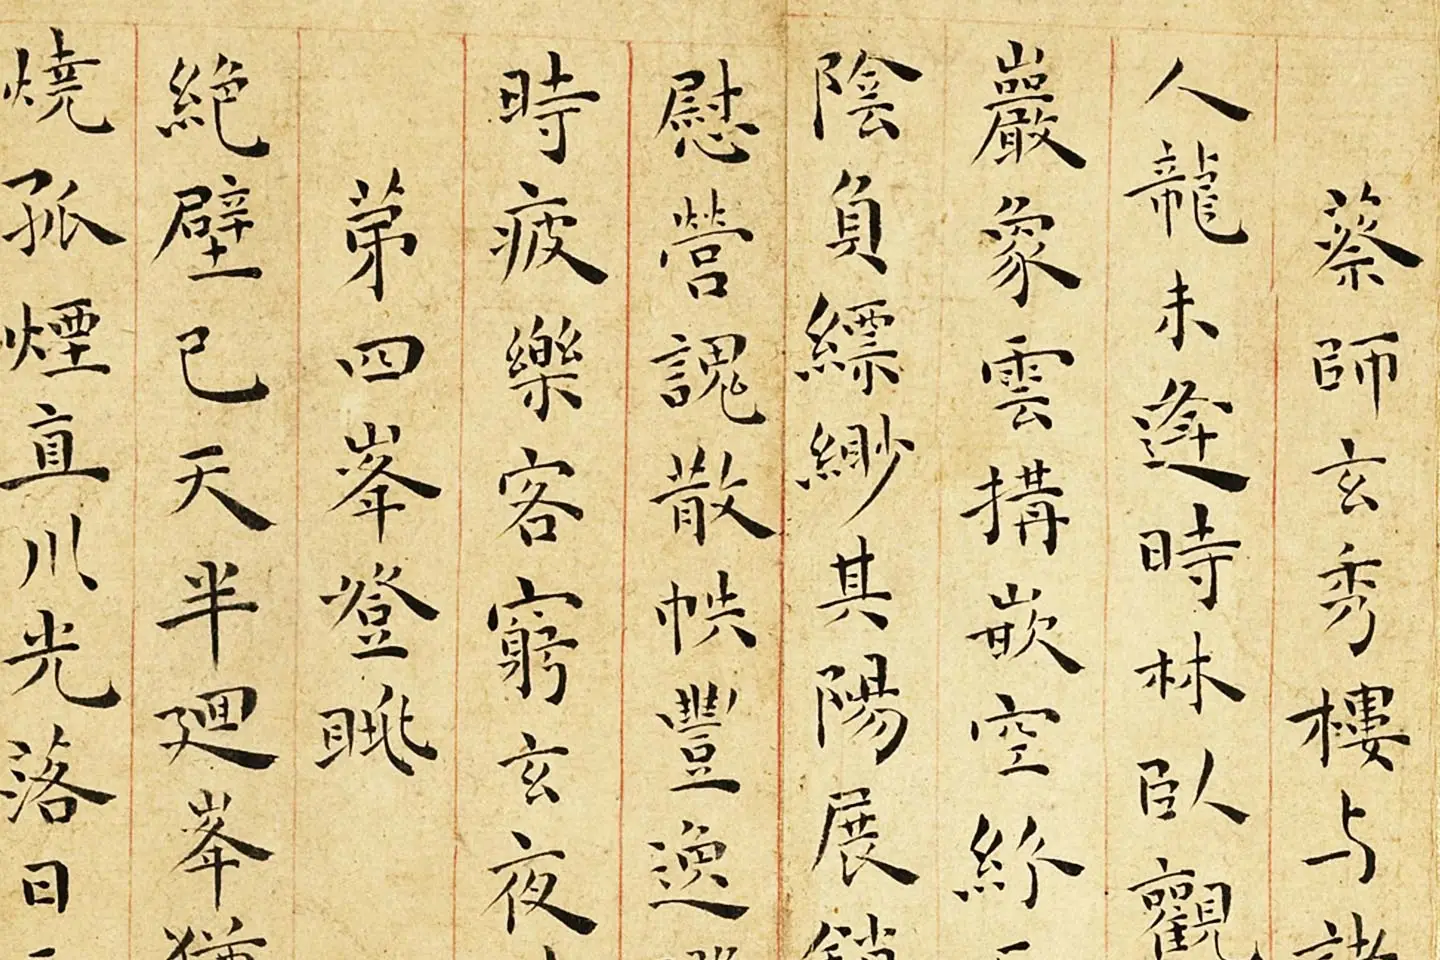 蔡師玄秀樓与諸
人龍未逢時林臥觀
巖象雲搆嵌空紛
陰負縹緲其陽展
慰營謉散帙豐逸
時疲樂客窮玄夜
苐四峯登眺
絶壁已天半迴峯猶
燒孤煙直川光落日